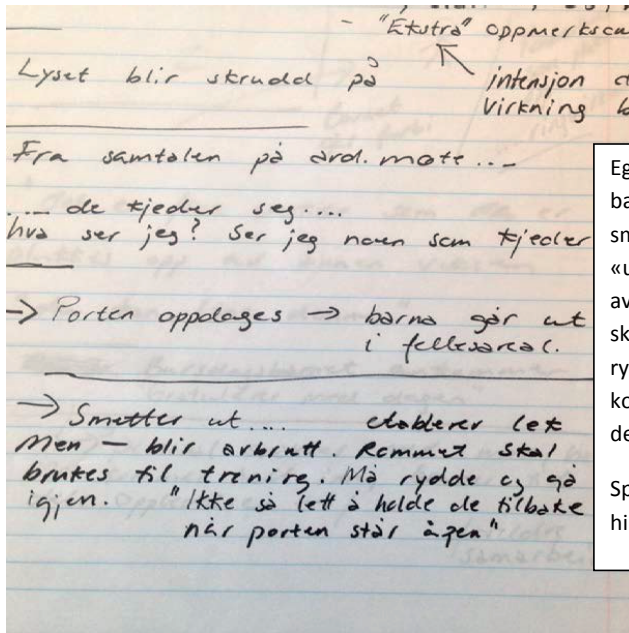 - "Ekstra" oppmerksom
Lyset blir skrudd på
intensjon
virkning b
Fra samtalen på avd. møte ...
.... de kjeder seg....
hva ser jeg? Ser jeg noen som kjeder
→ Porten oppdages → barna går ut
i fellesareal.
→ Smetter ut .... etablerer lek
Men - blir avbrutt. Rommet skal
brukes til trening. Må rydde og gå
igjen. "Ikke så lett å holde de tilbake
når porten står åpen"
Eg
ba
sn
«u
av
sk
ry
ko
de
Sp
hi